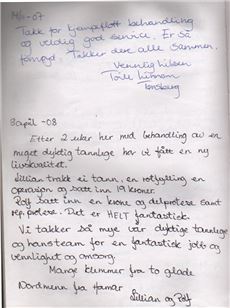 Takk for kjempeflott behandling
og veldig god service. Er så
fornøyd. Takker dere alle sammen.
Vennlig hilsen
Tønsberg
3 april -08
Etter 2 uker her med behandling av en
meget dyktig tannlege har vi fått en ny
livskvalitet.
Lillian trakk ei tann, en rotfylling en
operasjon og satt inn 19 kroner.
Rolf satt inn en krone og delprotese samt
rep. protese. Det er HELT fantastisk.
Vi takker så mye vår dyktige tannlege
og hans team for en fantastisk jobb og
vennlighet og omsorg.
Mange klemmer fra to glade
Nordmenn fra Hamar
Lillian og Rolf